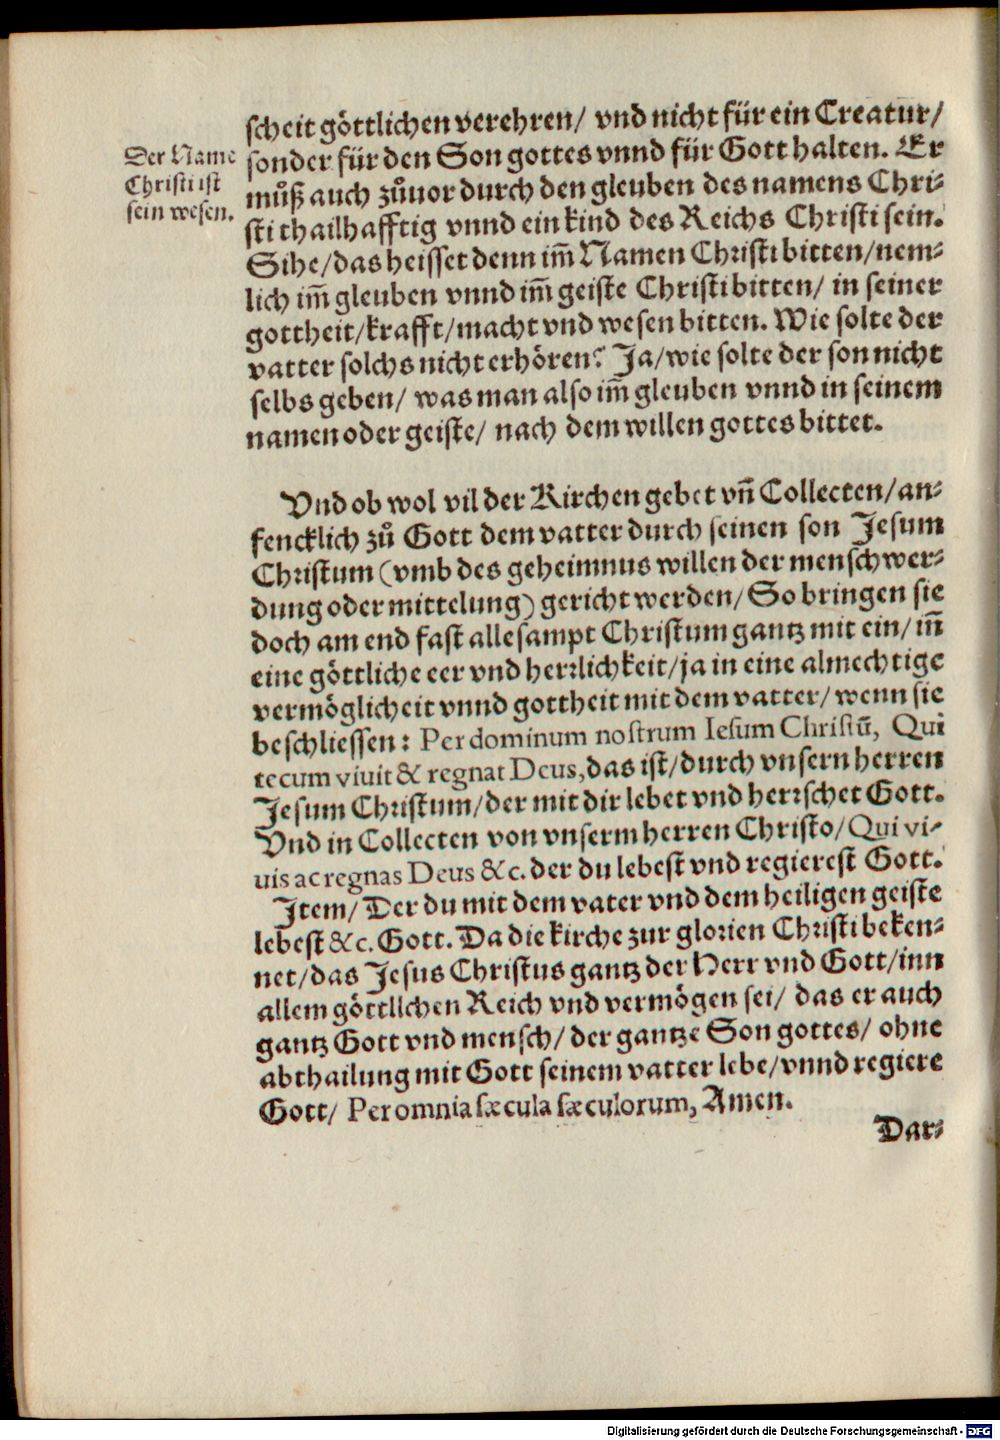 Der Name
Christi ist
sein wesen.
scheit göttlichen verehren/ vnd nicht für ein Creatur/
sonder für den Son gottes vnnd für Gott halten. Er
můß auch zůuor durch den gleuben des namens Chri⸗
sti thailhafftig vnnd ein kind des Reichs Christi sein.
Sihe/das heisset denn im̄ Namen Christi bitten/nem⸗
lich im̄ gleuben vnnd im̄ geiste Christi bitten/ in seiner
gottheit/krafft/macht vnd wesen bitten. Wie solte der
vatter solchs nicht erhören? Ja/wie solte der son nicht
selbs geben/ was man also im̄ gleuben vnnd in seinem
namen oder geiste/ nach dem willen gottes bittet.
Vnd ob wol vil der Kirchen gebet vn̄ Collecten/an⸗
fencklich zů Gott dem vatter durch seinen son Jesum
Christum (vmb des geheimnus willen der menschwer⸗
dung oder mittelung) gericht werden/ So bringen sie
doch am end fast allesampt Christum gantz mit ein/ in̄
eine göttliche eer vnd herrlichkeit/ja in eine almechtige
vermöglicheit vnnd gottheit mit dem vatter/ wenn sie
beschliessen: Per dominum nostrum Iesum Christū, Qui
tecum viuit & regnat Deus,das ist/durch vnsern herren
Jesum Christum/der mit dir lebet vnd herrschet Gott.
Vnd in Collecten von vnserm herren Christo/Qui vi-
uis ac regnas Deus &c. der du lebest vnd regierest Gott.
Item/ Der du mit dem vater vnd dem heiligen geiste
lebest &c. Gott. Da die kirche zur glorien Christi beken⸗
net/das Jesus Christus gantz der Herr vnd Gott/inn
allem göttlichen Reich vnd vermögen sei/ das er auch
gantz Gott vnd mensch/ der gantze Son gottes/ ohne
abthailung mit Gott seinem vatter lebe/vnnd regiere
Gott/ Per omnia sæcula sæculorum, Amen.
Dar⸗
Digitalisierung gefördert durch die Deutsche Forschungsgemeinschaft - DFG